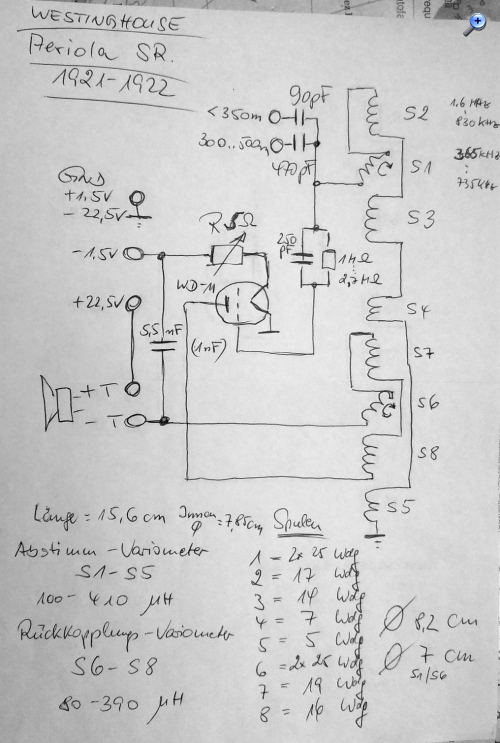 WESTINGHOUSE
Aeriola SR.
1921-1922
90pF
< 350m
300..500m
470pF
S2
1.6 MHz
830 kHz
S1
365 kHz
735 kHz
S3
GND
+1,5V
- 22,5V
-1,5V
R 5Ω
250 pF
1MΩ
2,7MΩ
WD-11
+22,5V
5,5nF
(1nF)
S4
S7
+ T
- T
S6
S8
S5
Länge = 15,6 cm Innen ϕ = 7,85cm Spulen
Abstimm-Variometer
S1-S5
100-410 µH
Rückkopplungs-Variometer
S6-S8
80-390 µH
1 - 2x 25 Wdg
2 = 17 Wdg
3 = 14 Wdg
4 = 7 Wdg
5 = 5 Wdg
6 = 2x 25 Wdg
7 = 19 Wdg
8 = 16 Wdg
Ø 8,2 cm
Ø 7 cm
S1/S6